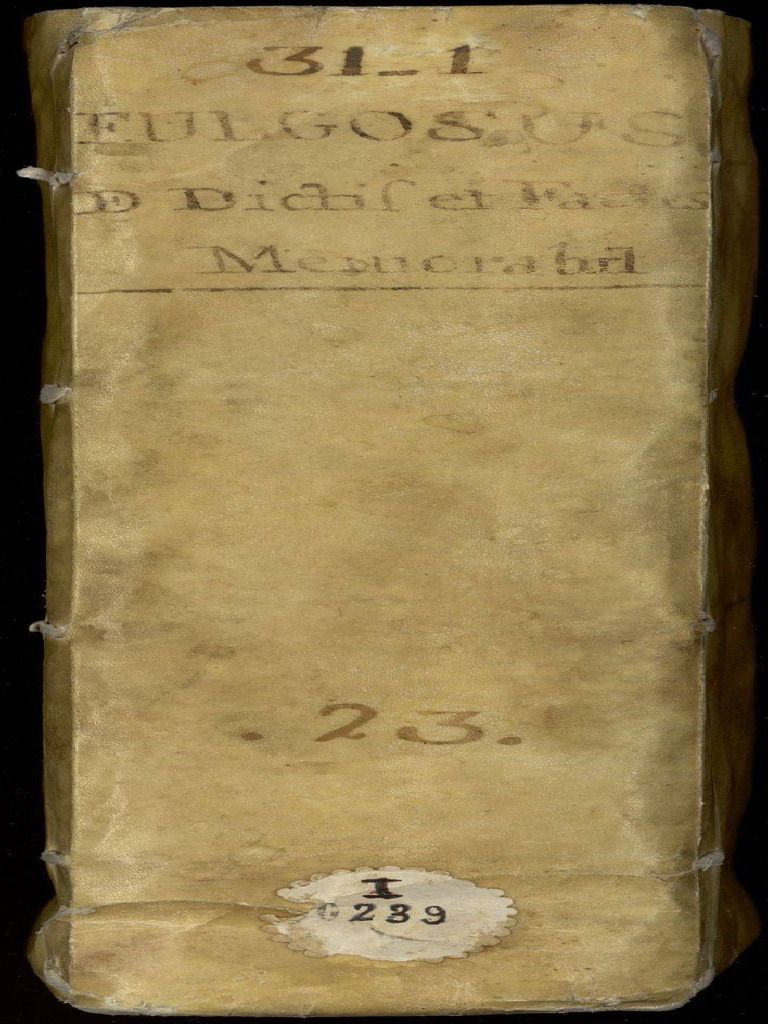 31-1
FULGOSUS
D Dictiſ et Factis
Memorabil
. 23.
I
6239